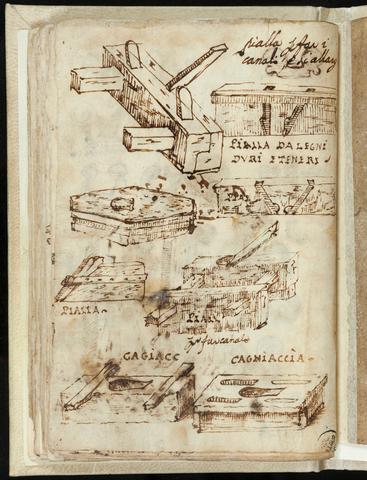 pialla p far i
canali
PIALLA DA LEGNI
DVRI E TENERI
PIALLA
PIALL
p far canali
CAGIACC
CAGNIACCIA